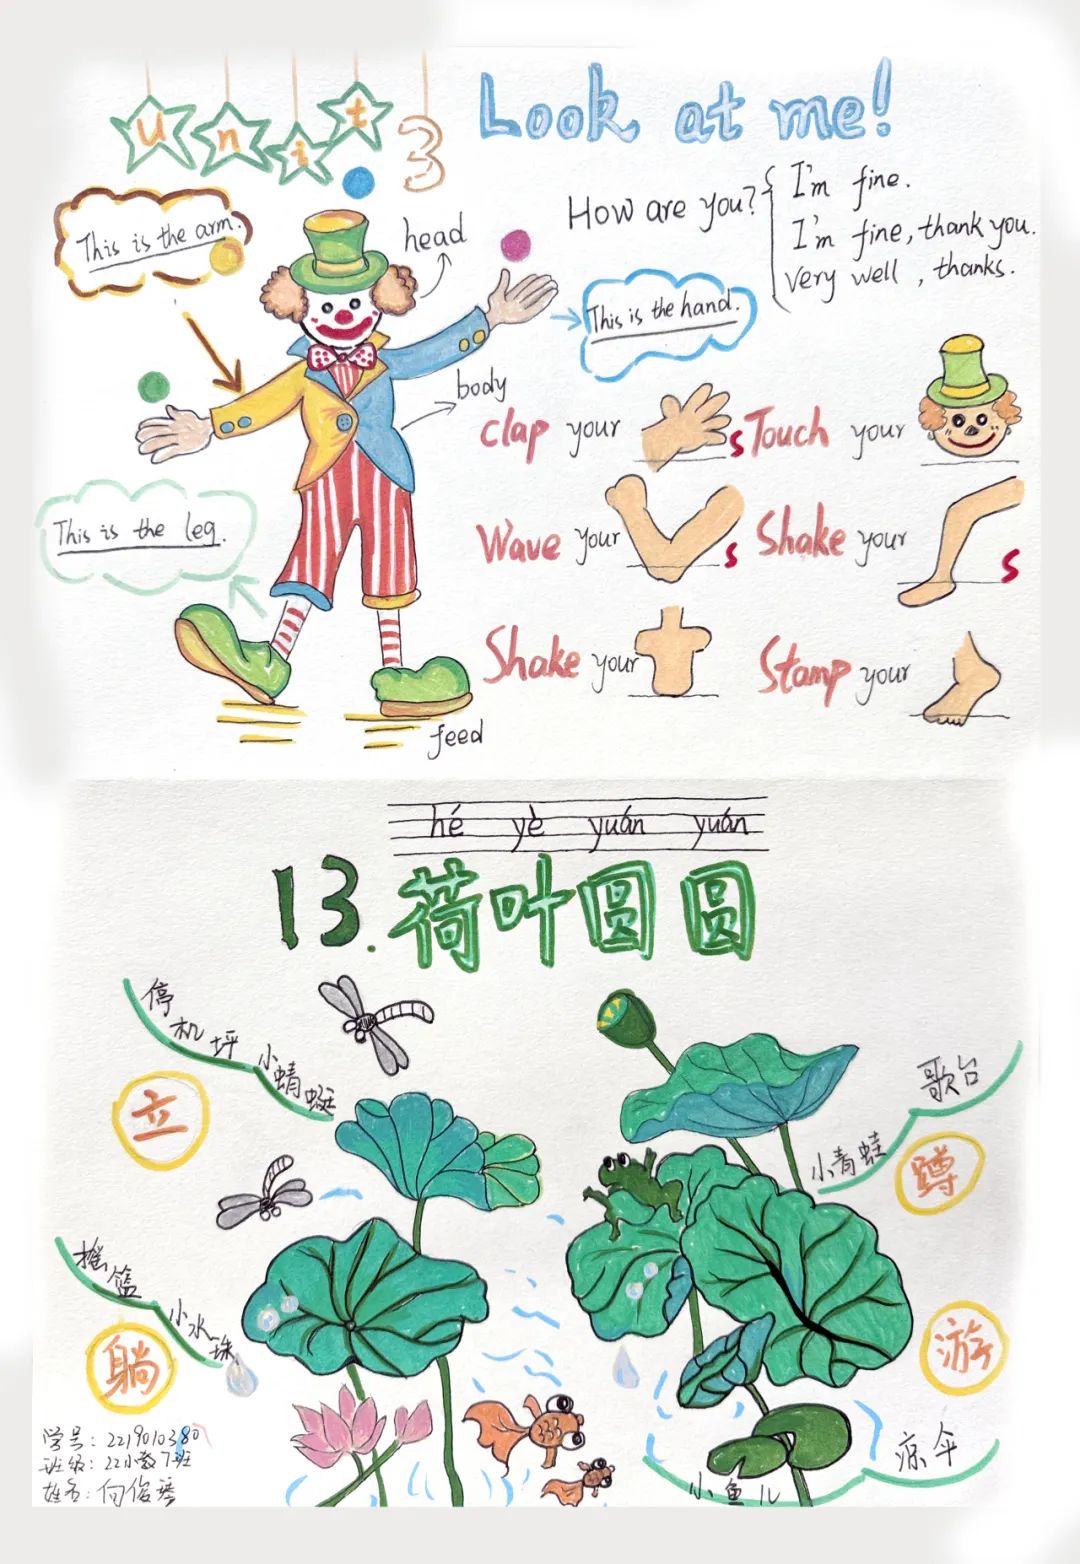 unit 3
Look at me!
How are you?
I'm fine.
I'm fine, thank you.
Very well, thanks.
This is the arm.
head
This is the hand.
body
This is the leg.
feed
clap your s
Touch your
Wave your s
Shake your s
Shake your
Stamp your
hé yè yuán yuán
13.荷叶圆圆
停机坪
小蜻蜓
立
歌台
小青蛙
蹲
摇篮
小水珠
躺
游
凉伞
小鱼儿
学号:2219010380
班级:22小教7班
姓名:向俊